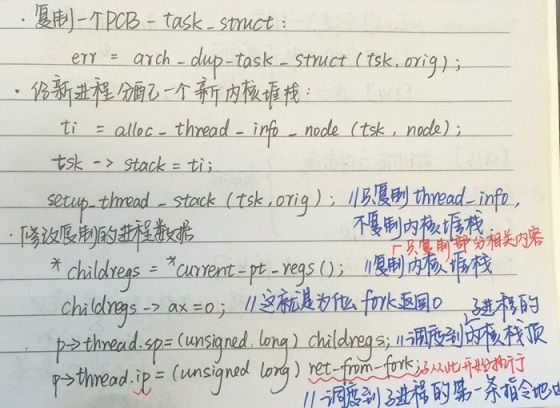 · 复制一个PCB-task_struct:
err = arch-dup-task_struct (tsk, orig);
· 给新进程分配了一个新内核堆栈:
ti = alloc_thread_info_node (tsk, node);
tsk -> stack = ti;
setup_thread_stack (tsk, orig); //只复制thread_info,
不复制内核堆栈
· 修改复制的进程数据
只复制部分相关内容
*childregs = *current-pt-regs(); //复制内核堆栈
childregs -> ax = 0; //这就是为什么fork返回0
子进程的
p->thread.sp = (unsigned long) childregs; //调度到内核栈顶
p->thread.ip = (unsigned long) ret-from-fork; 子从此开始执行
//调度到子进程的第一条指令地